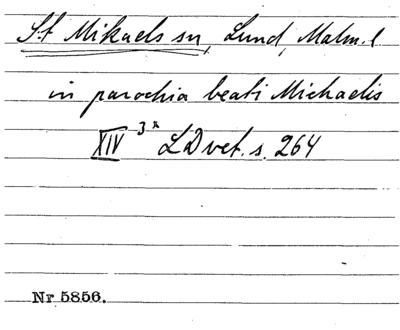 St Mikaels sn, Lund, Malm. l
in parochia beati Michaelis
XIV 3x LDvet. s. 264
Nr 5856.